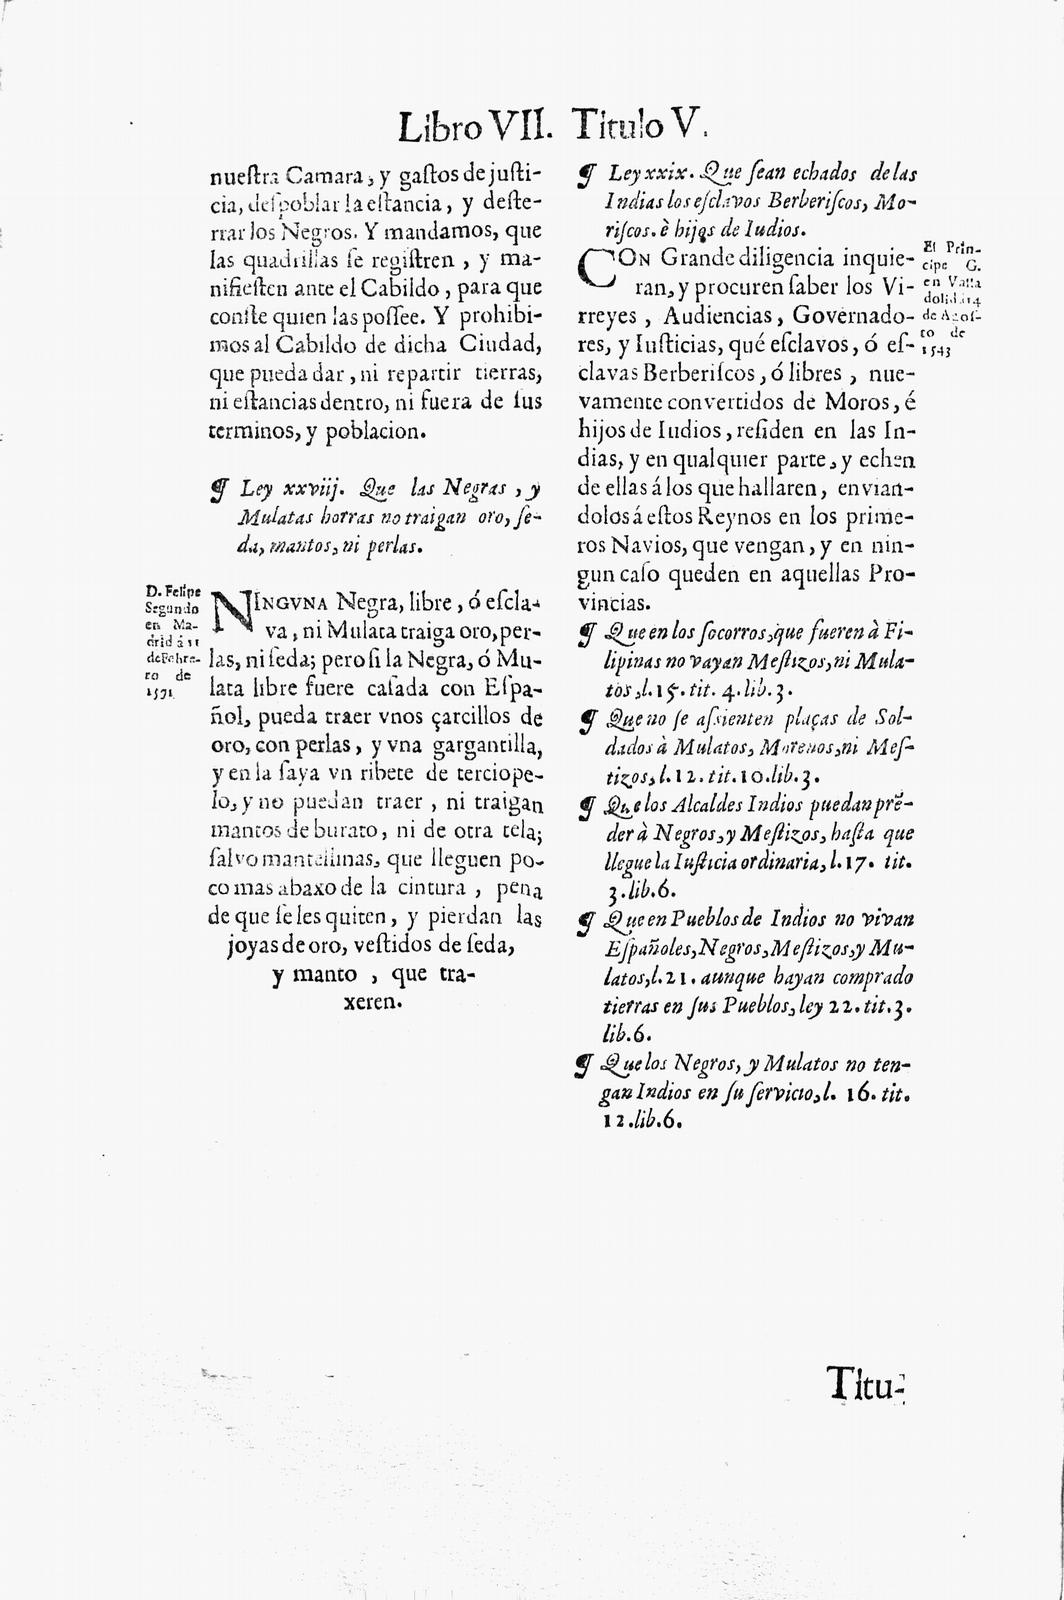 Libro VII. Titulo V.
nueſtra Camara, y gaſtos de juſti-
cia, deſpoblar la eſtancia, y deſte-
rrar los Negros. Y mandamos, que
las quadrillas ſe regiſtren, y ma-
nifieſten ante el Cabildo, para que
conſte quien las poſſee. Y prohibi-
mos al Cabildo de dicha Ciudad,
que pueda dar, ni repartir tierras,
ni eſtancias dentro, ni fuera de ſus
terminos, y poblacion.
¶ Ley xxviij. Que las Negras, y
Mulatas horras no traigan oro, ſe-
da, mantos, ni perlas.
D. Felipe
Segundo
en Ma-
drid á 11
de Febre-
ro de
1571.
NINGVNA Negra, libre, ó eſcla-
va, ni Mulata traiga oro, per-
las, ni ſeda; pero ſi la Negra, ó Mu-
lata libre fuere caſada con Eſpa-
ñol, pueda traer vnos çarcillos de
oro, con perlas, y vna gargantilla,
y en la ſaya vn ribete de terciope-
lo, y no puedan traer, ni traigan
mantos de burato, ni de otra tela;
ſalvo mantellinas, que lleguen po-
co mas abaxo de la cintura, pena
de que ſe les quiten, y pierdan las
joyas de oro, veſtidos de ſeda,
y manto, que tra-
xeren.
¶ Ley xxix. Que ſean echados de las
Indias los eſclavos Berberiſcos, Mo-
riſcos, è hijos de Iudios.
CON Grande diligencia inquie-
ran, y procuren ſaber los Vi-
rreyes, Audiencias, Governado-
res, y Iuſticias, qué eſclavos, ó eſ-
clavas Berberiſcos, ó libres, nue-
vamente convertidos de Moros, é
hijos de Iudios, reſiden en las In-
dias, y en qualquier parte, y echen
de ellas á los que hallaren, envian-
dolos á eſtos Reynos en los prime-
ros Navios, que vengan, y en nin-
gun caſo queden en aquellas Pro-
vincias.
El Prin-
cipe G.
en Valla
dolid á 14
de Agoſ-
to de
1543
¶ Que en los ſocorros, que fueren à Fi-
lipinas no vayan Meſtizos, ni Mula-
tos, l. 15. tit. 4. lib. 3.
¶ Que no ſe aſsienten plaças de Sol-
dados à Mulatos, Morenos, ni Meſ-
tizos, l. 12. tit. 10. lib. 3.
¶ Que los Alcaldes Indios puedan prē-
der à Negros, y Meſtizos, haſta que
llegue la Iuſticia ordinaria, l. 17. tit.
3. lib. 6.
¶ Que en Pueblos de Indios no vivan
Eſpañoles, Negros, Meſtizos, y Mu-
latos, l. 21. aunque hayan comprado
tierras en ſus Pueblos, ley 22. tit. 3.
lib. 6.
¶ Que los Negros, y Mulatos no ten-
gan Indios en ſu ſervicio, l. 16. tit.
12. lib. 6.
Titu-